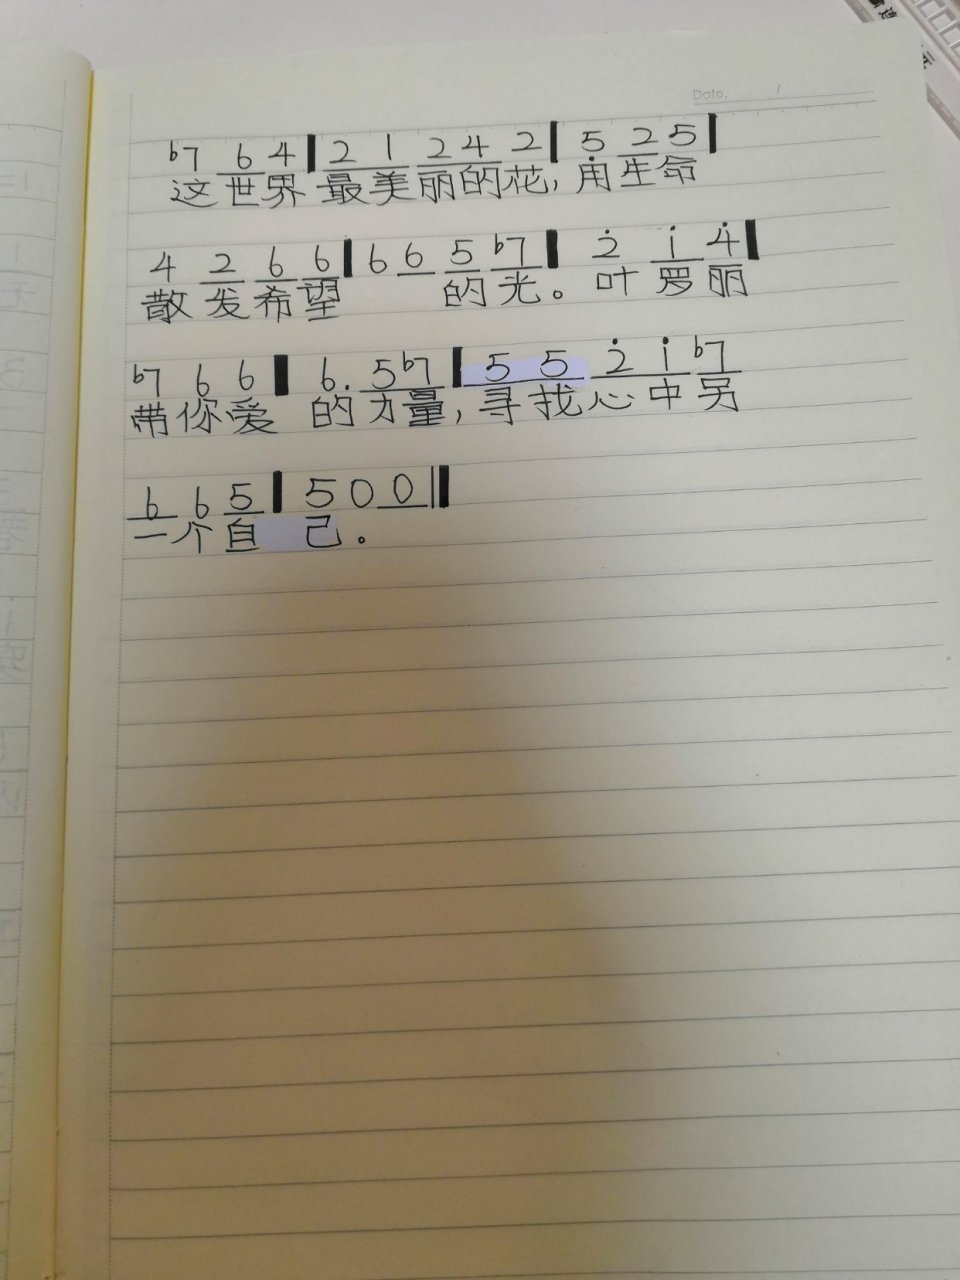 Date. /
♭7 6 4 | 2 1 2 4 2 | 5̣ 2 5 |
这世界 最美丽的花,用生命
4 2 6 6 | 6 6 5 ♭7 | 2̇ 1̇ 4̇ |
散发希望 的光。叶罗丽
♭7 6 6 | 6. 5 ♭7 | 5 5 2̇ 1̇ ♭7
带你爱 的力量,寻找心中另
6 6 5 | 5 0 0 ||
一个自 己。